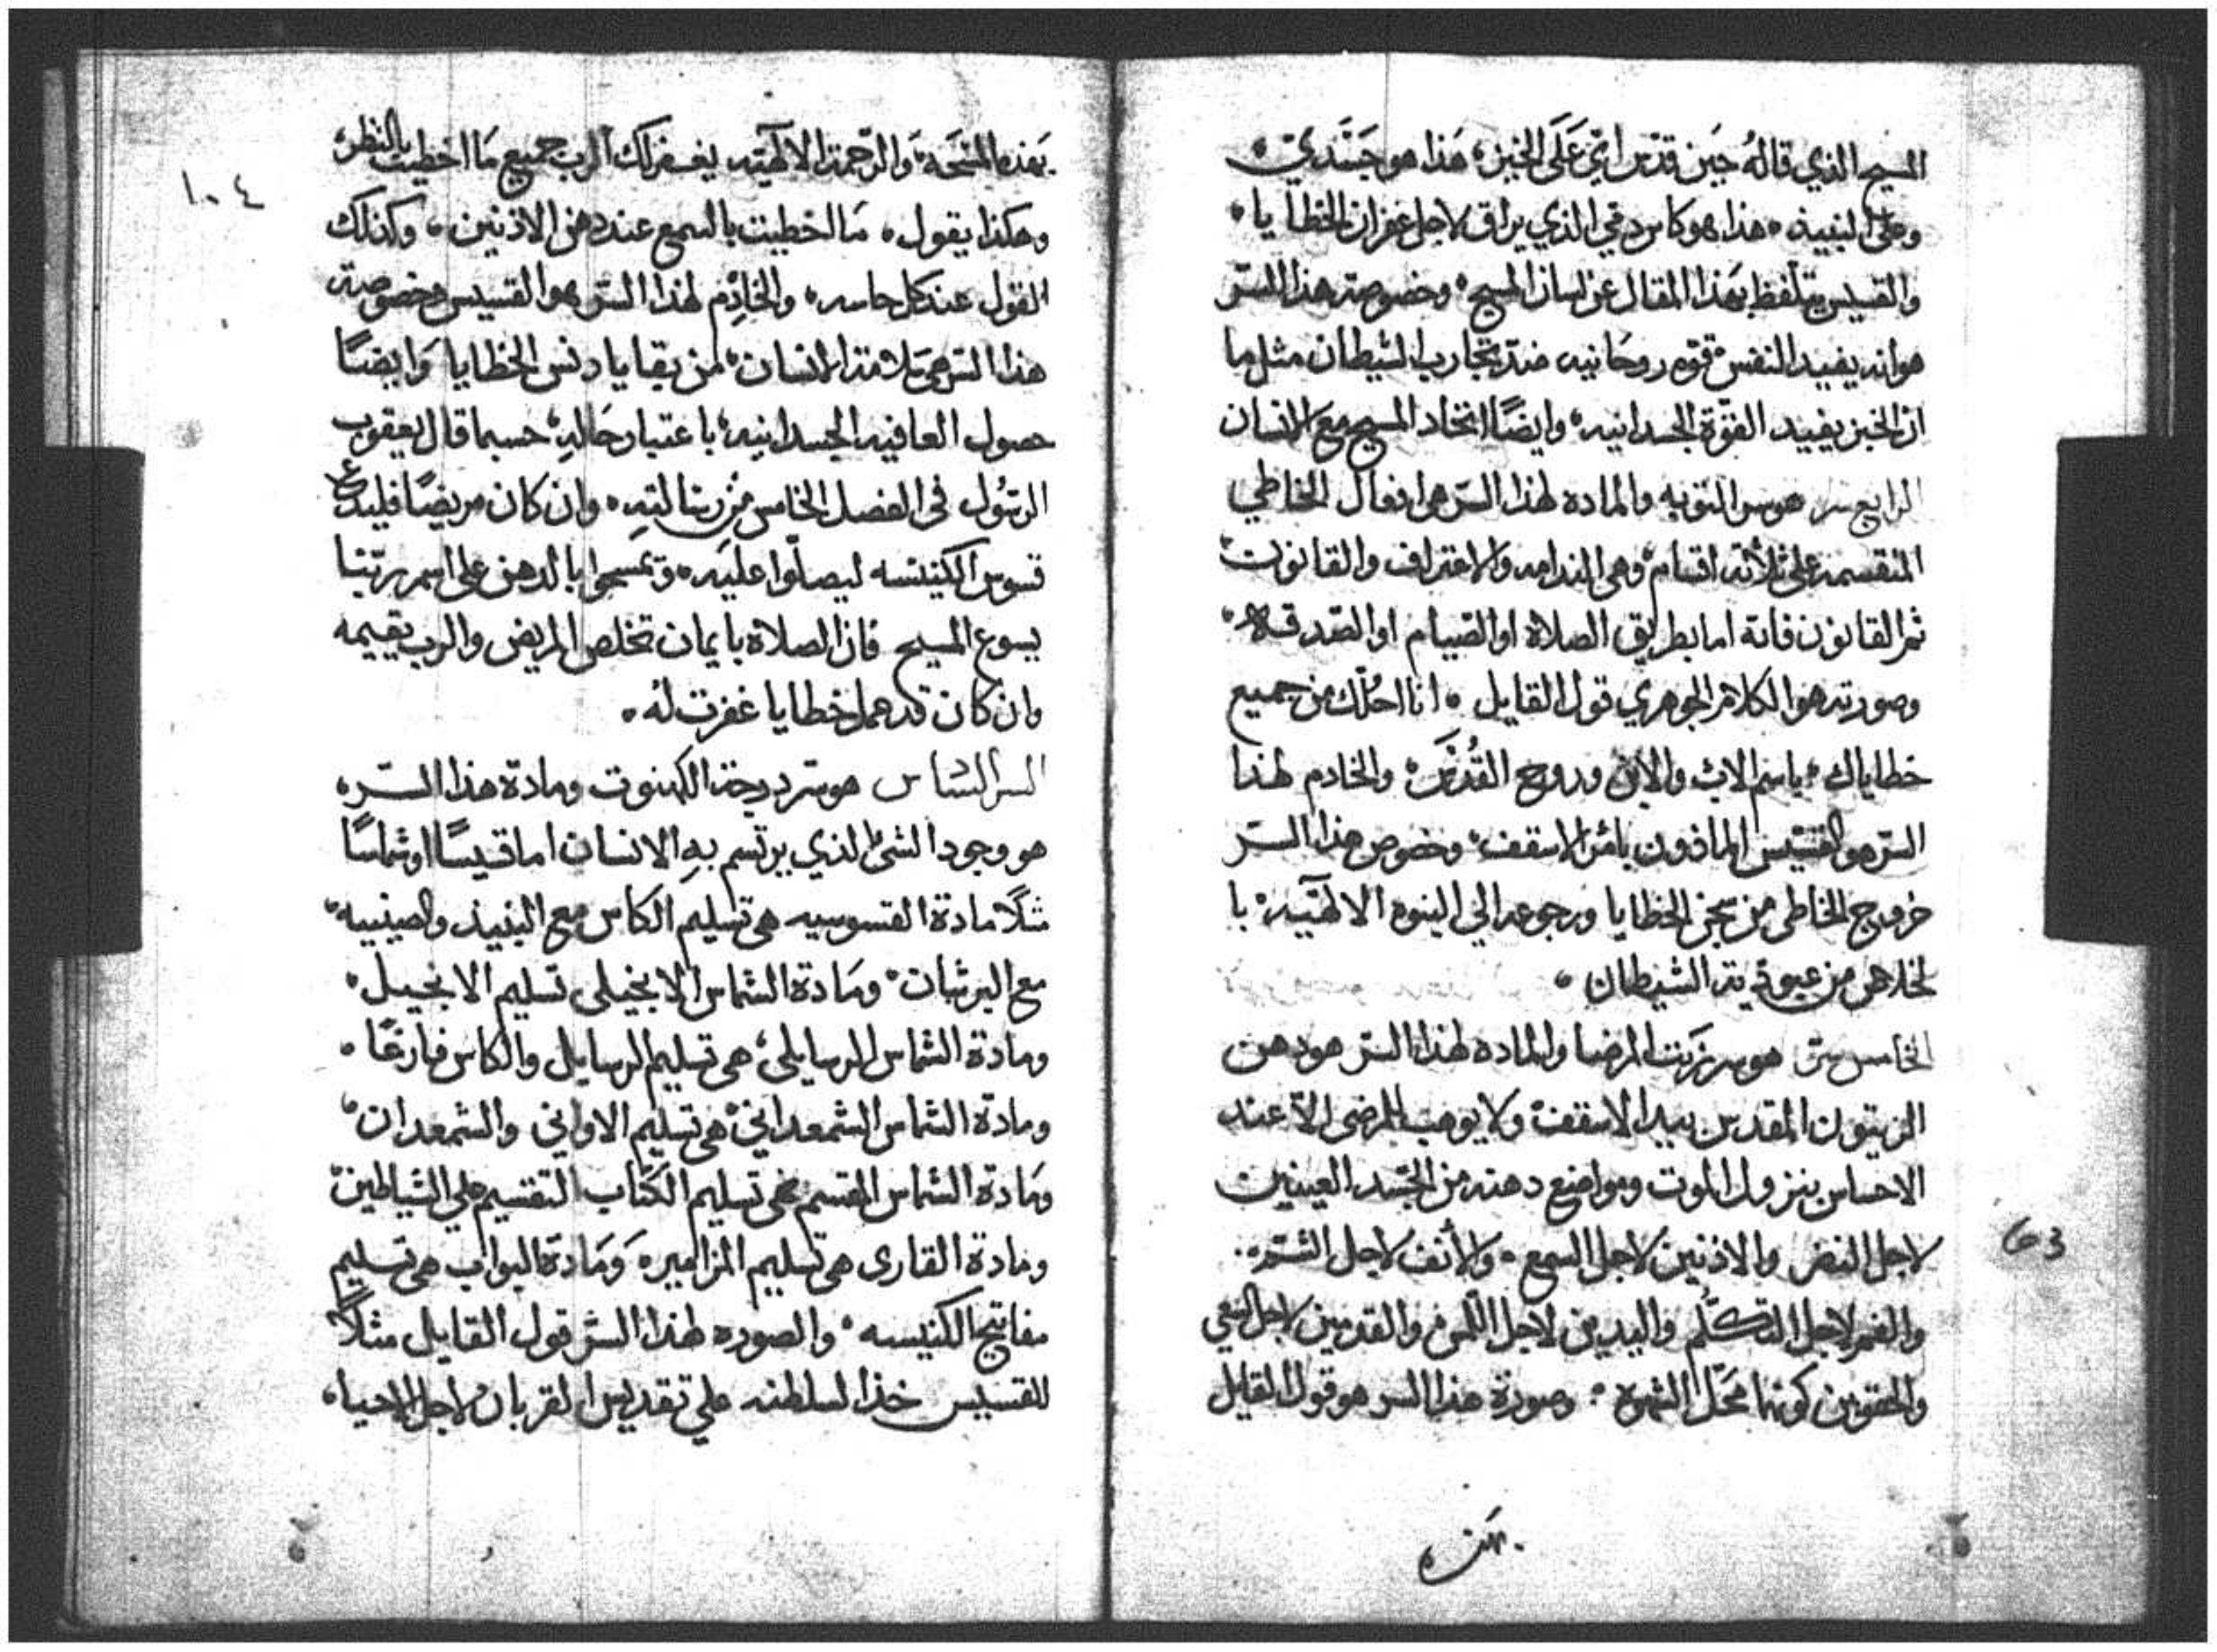 المسيح الذي قالهُ حين قدّس ايّ عَلَى الخبز، هَذا هو جسَدَيّ،
وعلى النبيذ، هذا هو كاس دمي الذي يراق لاجل غفران الخطايا،
والقسيس يتلفظ بهَذا المقال عن لسان المسيح، وخصوصته هذا السّر
هو انه يفيد النفس قوّه روحَانيه ضدّ تجارب الشيطان مثل ما
ان الخبز يفييد القوّة الجسدانيه، وايضًا اتحاد المسيح مع الانسان
الرابع سر هو سر التوبه والماده لهذا السّر هو افعال الخاطي
المنقسمه على ثلاثة اقسام، وهي الندامه والاعتراف والقانون،
ثمر القانون فانه اما بطريق الصلاة او الصّيام او الصّدقه،
وصورته هو الكلام الجوهري قول القايل، انا احلّك من جميع
خطاياك، باسم الاب والابن وروح القُدُسَ، والخادم لهذا
السّر هو القسّيس الماذون بامر الاسقف، وخصوص هذا السّر
خروج الخاطي من سجن الخطايا ورجوعه الي البنوه الالهيّه، با
لخلاص من عبوديته الشيطان،
الخامس سرّ هو سر زيَت المرضا والماده لهذا السّر هو دهن
الزيتون المقدس بيد الاسقف، ولا يوهب للمرضى الاّ عند
الاحساس بنزول الموت ومواضع دهنه من الجسّد العينين
لاجل النضر والاذنين لاجل السمع، والأنف لاجل الشّم،
والفم لاجل التكلُّم واليدين لاجل اللّمس والقدمين لاجل السّعي
والحقوين كونها محَلّ الشهوة، وصورة هذا السر هو قول القايل
بهَذه
بهَذه المسحَه، وَالرّحمة الالآهيّه يغفر لك الرب جميع مَا اخطيت بالنظر،
وهكذا يقول، مَا اخطييت بالسمع عند دهن الاذنين، وكذلك
القول عند كل حاسه، والخادِم لهذا السّر هو القسيس وخصوصته
هذا السّر هي سَلامة الانسان، من بقايا دنس الخطايا وَايضًا
حصول العافيه الجسدانيه، باعتبار حَالهِ، حسبما قال يعقوب
الرسُول في الفصل الخامس من رسالته، وان كان مريضًا فليدع
قسوس الكنيسه ليصلّوا عليَه، وتمسحوا بالدهن على اسم ربّنا
يسوع المسيح فان الصلاة بايمان تخلص المريض والرب يقييمه
وان كان قد عمل خطايا غفرت له،
السر السَّادس هو سّر درجة الكهنوت ومادة هذا السّر،
هو وجود الشئ الذي يرتسم بهِ الانسان اما قسيسًا او شماسًا
مثلًا مادة القسوسيه هي تسليم الكاس مع النبيذ والصينييه،
مع البرشان، ومَادة الشماس الانجيلي تسليم الانجيل،
ومادة الشماس الرسايلي، هي تسليم الرسايل والكاس فارغًا،
ومادة الشماس الشمعداني، هي تسليم الاواني والشمعدان،
ومَادة الشماس المقسم هي تسليم الكتاب التقسيم علي الشياطين،
ومادة القاري هي تسليم المزامير، وَمَادة البواب هي تسليم
مفاتيح الكنيسه، والصوره لهذا السّر قول القايل مثلًا
للقسيس خذ السلطنه علي تقديس القربان لاجل الاحيا،
١٠٤